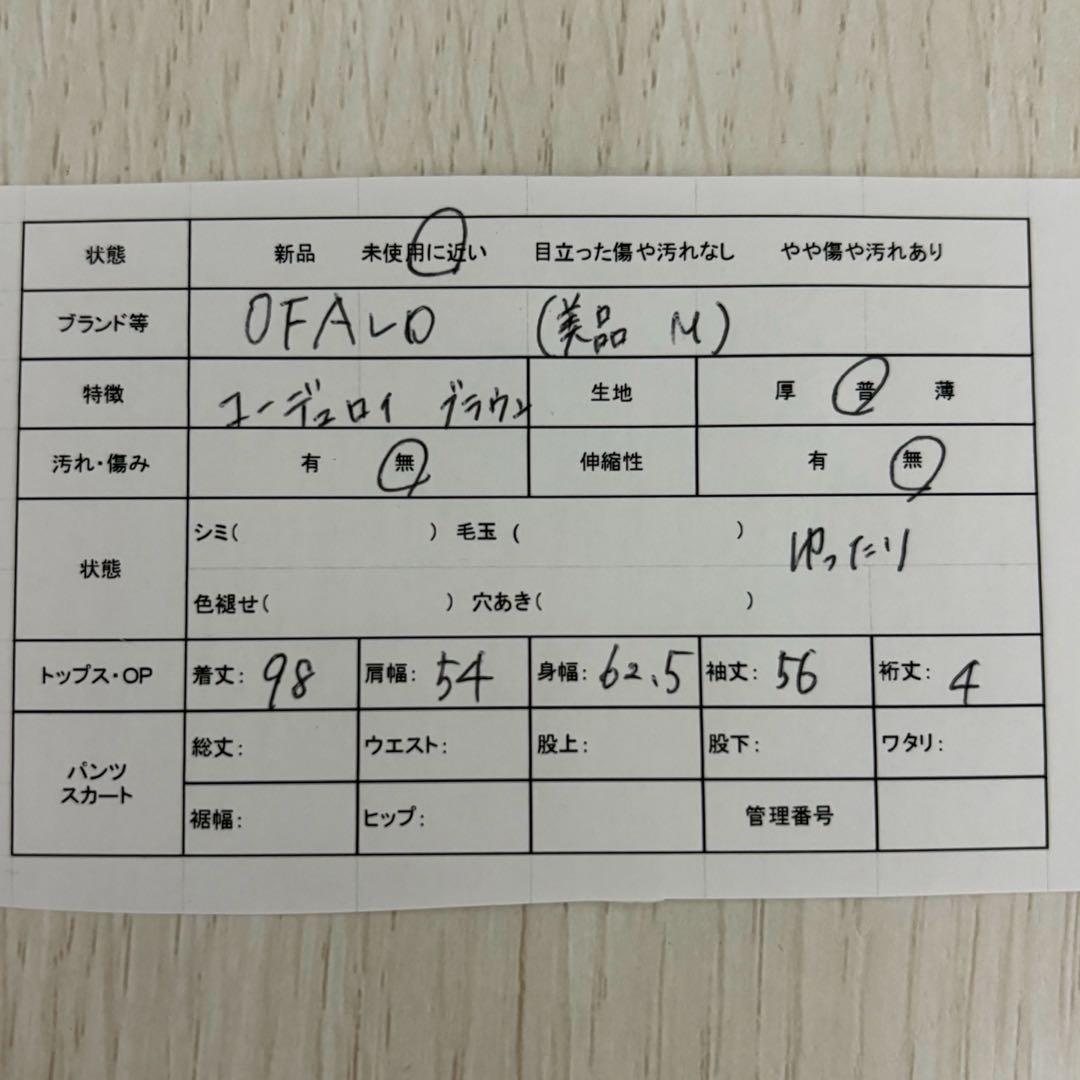 状態 新品 未使用に近い 目立った傷や汚れなし やや傷や汚れあり
ブランド等 OFALO (美品 M)
特徴 コーデュロイ ブラウン 生地 厚 普 薄
汚れ・傷み 有 無 伸縮性 有 無
状態 シミ( ) 毛玉 ( ) ゆったり
色褪せ( ) 穴あき( )
トップス・OP 着丈: 98 肩幅: 54 身幅: 62.5 袖丈: 56 裄丈: 4
パンツ スカート 総丈: ウエスト: 股上: 股下: ワタリ:
裾幅: ヒップ: 管理番号